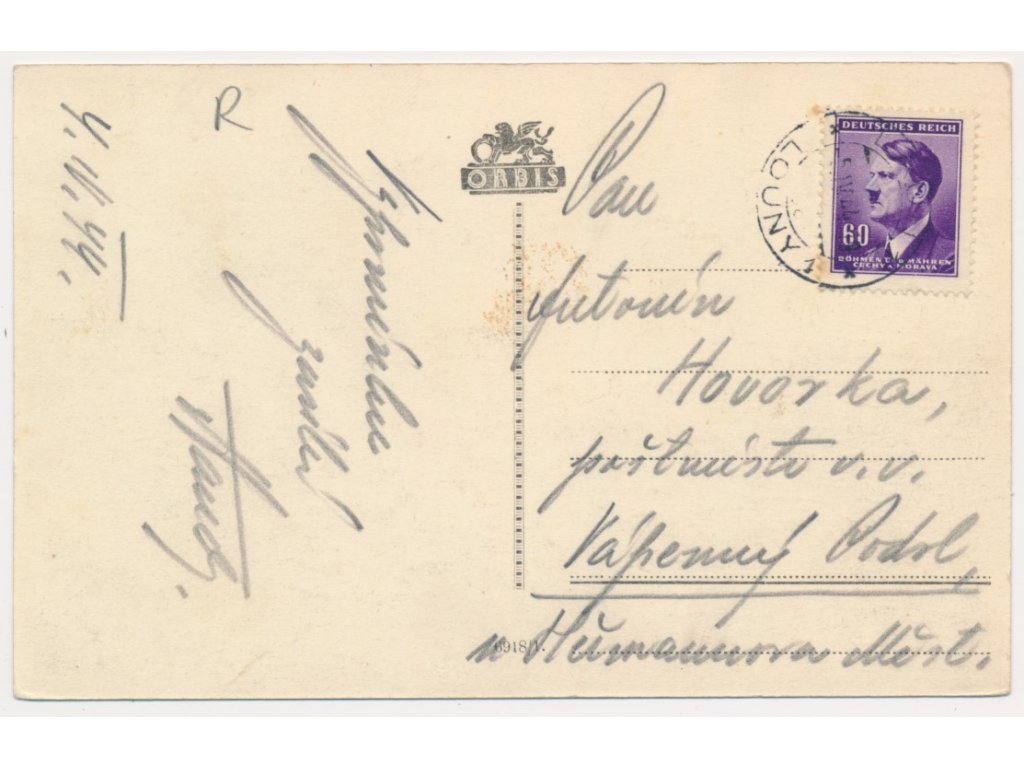 4. VI. 44.
R
Vzpomínku
zasílá
ORBIS
Pan
Antonín
Hovorka,
poštmistr v. v.
Vápenný Podol,
u Heřmanova Měst.
6918/1.
LOUNY
DEUTSCHES REICH
60
BÖHMEN UND MÄHREN
ČECHY A MORAVA